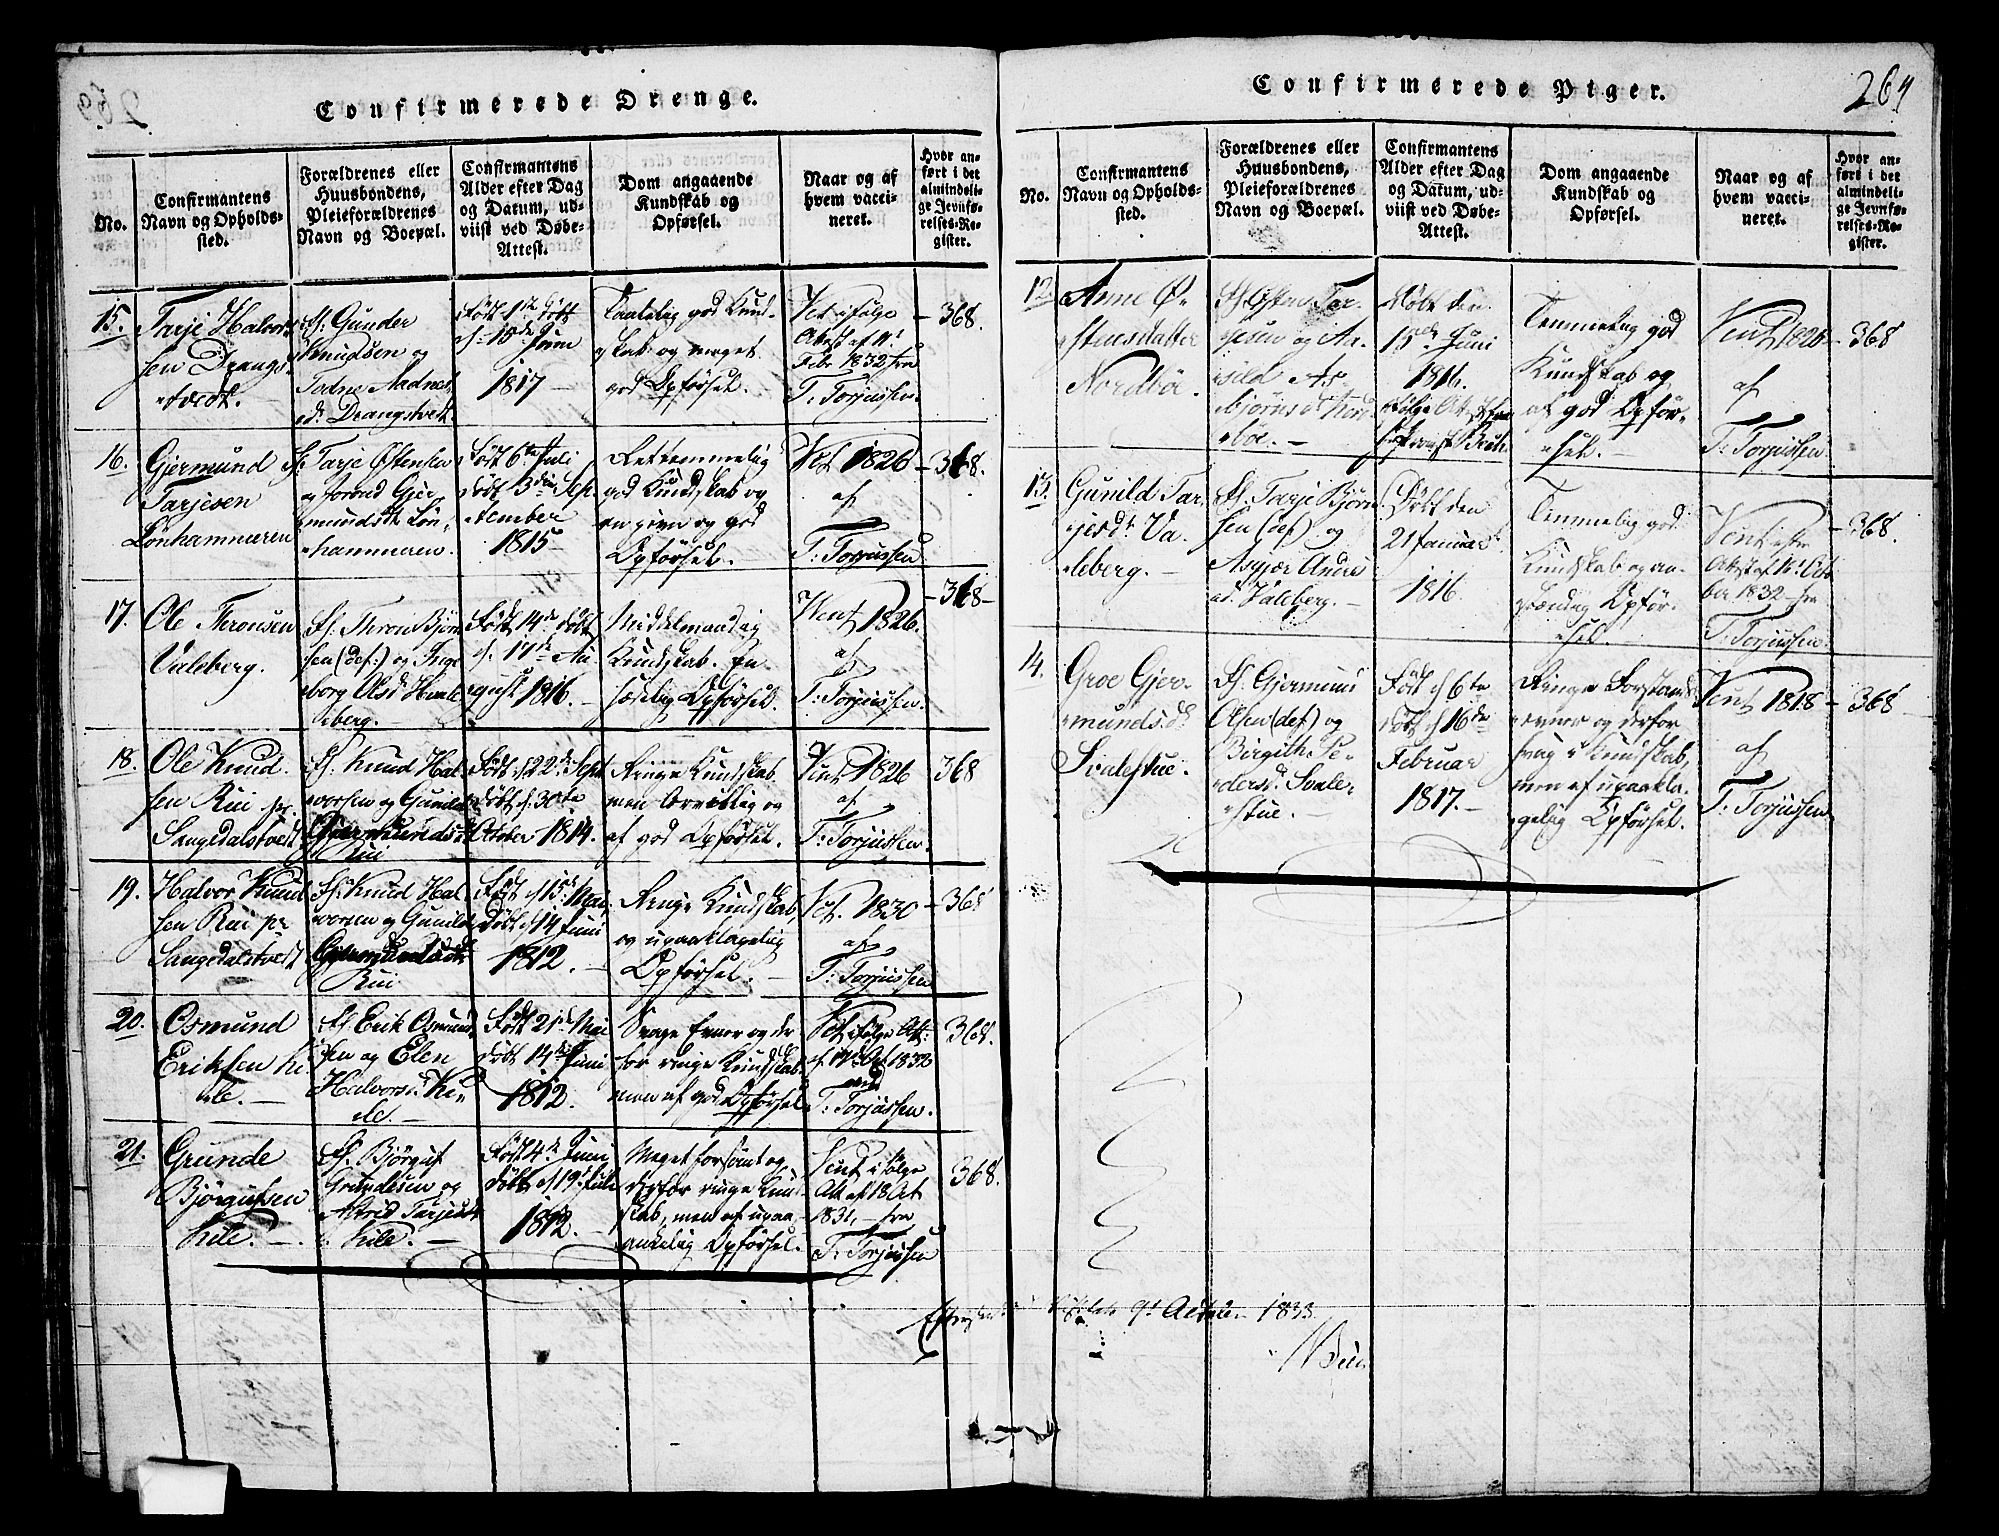 Confirmerede Drenge.
No.
Confirmantens
Navn og Opholds-
sted.
Forældrenes eller
Huusbondens,
Pleieforældrenes
Navn og Boepæl.
Confirmantens
Alder efter Dag
og Datum, ud-
viist ved Døbe-
Attest.
Dom angaaende
Kundskab og
Opførsel.
Naar og af
hvem vacci-
neret.
Hvor an-
ført i det
almindeli-
ge Jevnfø-
relses-Re-
gister.
15.
Tarje Halvors
sen Drangs
tvedt.
Gunder
Knudsen og
Tadne Aadnes
d. Drangstvedt
Født 1
18de Juni
1817
Taalelig god Kund-
skab og meget
god Opførsel.
Vct ifølge
Attest af
Febr 1832 fra
T. Torjussen
368.
16.
Gjermund
Tarjesen
Lønhammeren
Tarje Østensen
og Gjer-
mundsdt Løn-
hammeren.
Født 6te Juli
døbt 3die Sep-
tember
1815
Ret temmelig
god Kundskab og
og god
Opførsel.
Vct 1826
af
T: Torjussen
368.
17.
Ole Theronsen
Valeberg.
Theron Bjørn
sen (def:) og Inge
borg Olsd
berg.
Født 14de døbt
17de Au
gust 1816.
Middelmaadig
Kundskab.
Opførsel.
Vent 1826.
af
T: Torjussen.
368
18.
Ole Knud
sen Rui pr
Sangedalstvedt
Knud Hal
vorsen og Gunild
Gjermundsd
Rui
Født 22de Sept
døbt 30te
October 1814.
Ringe Kundskab
men og
af god Opførsel.
Vent 1826
af
T: Torjussen.
368
19.
Halvor Knud
sen Rui pr
Sangedalstvedt
Knud Hal
vorsen og Gunild
Rui
Født d 15de Mai
Døbt d 14 Juni
1812.
Ringe Kundskab,
og upaaklagelig
Opførsel.
Vct. 1830
af
T: Torjussen
368
20.
Osmund
Eriksen Ki
le.
Erik Osmund
sen og Elen
Halvorsd. Ki
le.
Født 21de Mai
døbt 14de Juni
1812.
Svage Evner og der
for ringe Kundskab
men af god Opførsel
Vct ifølge Att:
1832
T: Torjussen.
368.
21.
Grunde
Bjørgufsen
Kile.
Bjørguf
Grundesen og
Astrid Tarjesdt
Kile.
Født 4de Juni
Døbt d 19de Juli
1812.
Meget forsømt og
derfor ringe Kund
skab, men af upaa
Opførsel.
Vent ifølge
Att af 18 Oct
1831, fra
T: Torjussen
368.
Confirmerede Piger.
264
No.
Confirmantens
Navn og Opholds-
sted.
Forældrenes eller
Huusbondens,
Pleieforældrenes
Navn og Boepæl.
Confirmantens
Alder efter Dag
og Datum, ud-
viist ved Døbe-
Attest.
Dom angaaende
Kundskab og
Opførsel.
Naar og af
hvem vacci-
neret.
Hvor an-
ført i det
almindeli-
ge Jevnfø-
relses-Re-
gister.
12
Anne Ø-
stensdatter
Nordbøe.
Østen Tar-
jesen og Aa-
sild As-
bjørnsd Nord
bøe.
Døbt den
15de Juni
1816.
ifølge Attest fra
Temmelig god
Kundskab og
af god Opfør-
sel.
Vent 1826
af
T: Torjussen
368
13.
Gunild Tar-
jesdt. Va-
leberg.
Tarje Bjørn
sen (def) og
Asgjær
Valeberg.
Døbt den
21 Januar
1816.
Temmelig god
Kundskab og
Opfør-
sel.
Vent efter
Attest af
1832 fra
T: Torjussen.
368.
14.
Groe Gjer-
mundsdt
Svalestue.
Gjermund
Olsen (def) og
Birgithe Pe-
dersd. Svale-
stue.
Født d 6te
døbt d 16de
Februar
1817.
Ringe Forstands
evner og derfor
svag i Kundskab,
men af upaakla-
gelig Opførsel.
Vent 1818
af
T: Torjussen
368
9de October 1833.